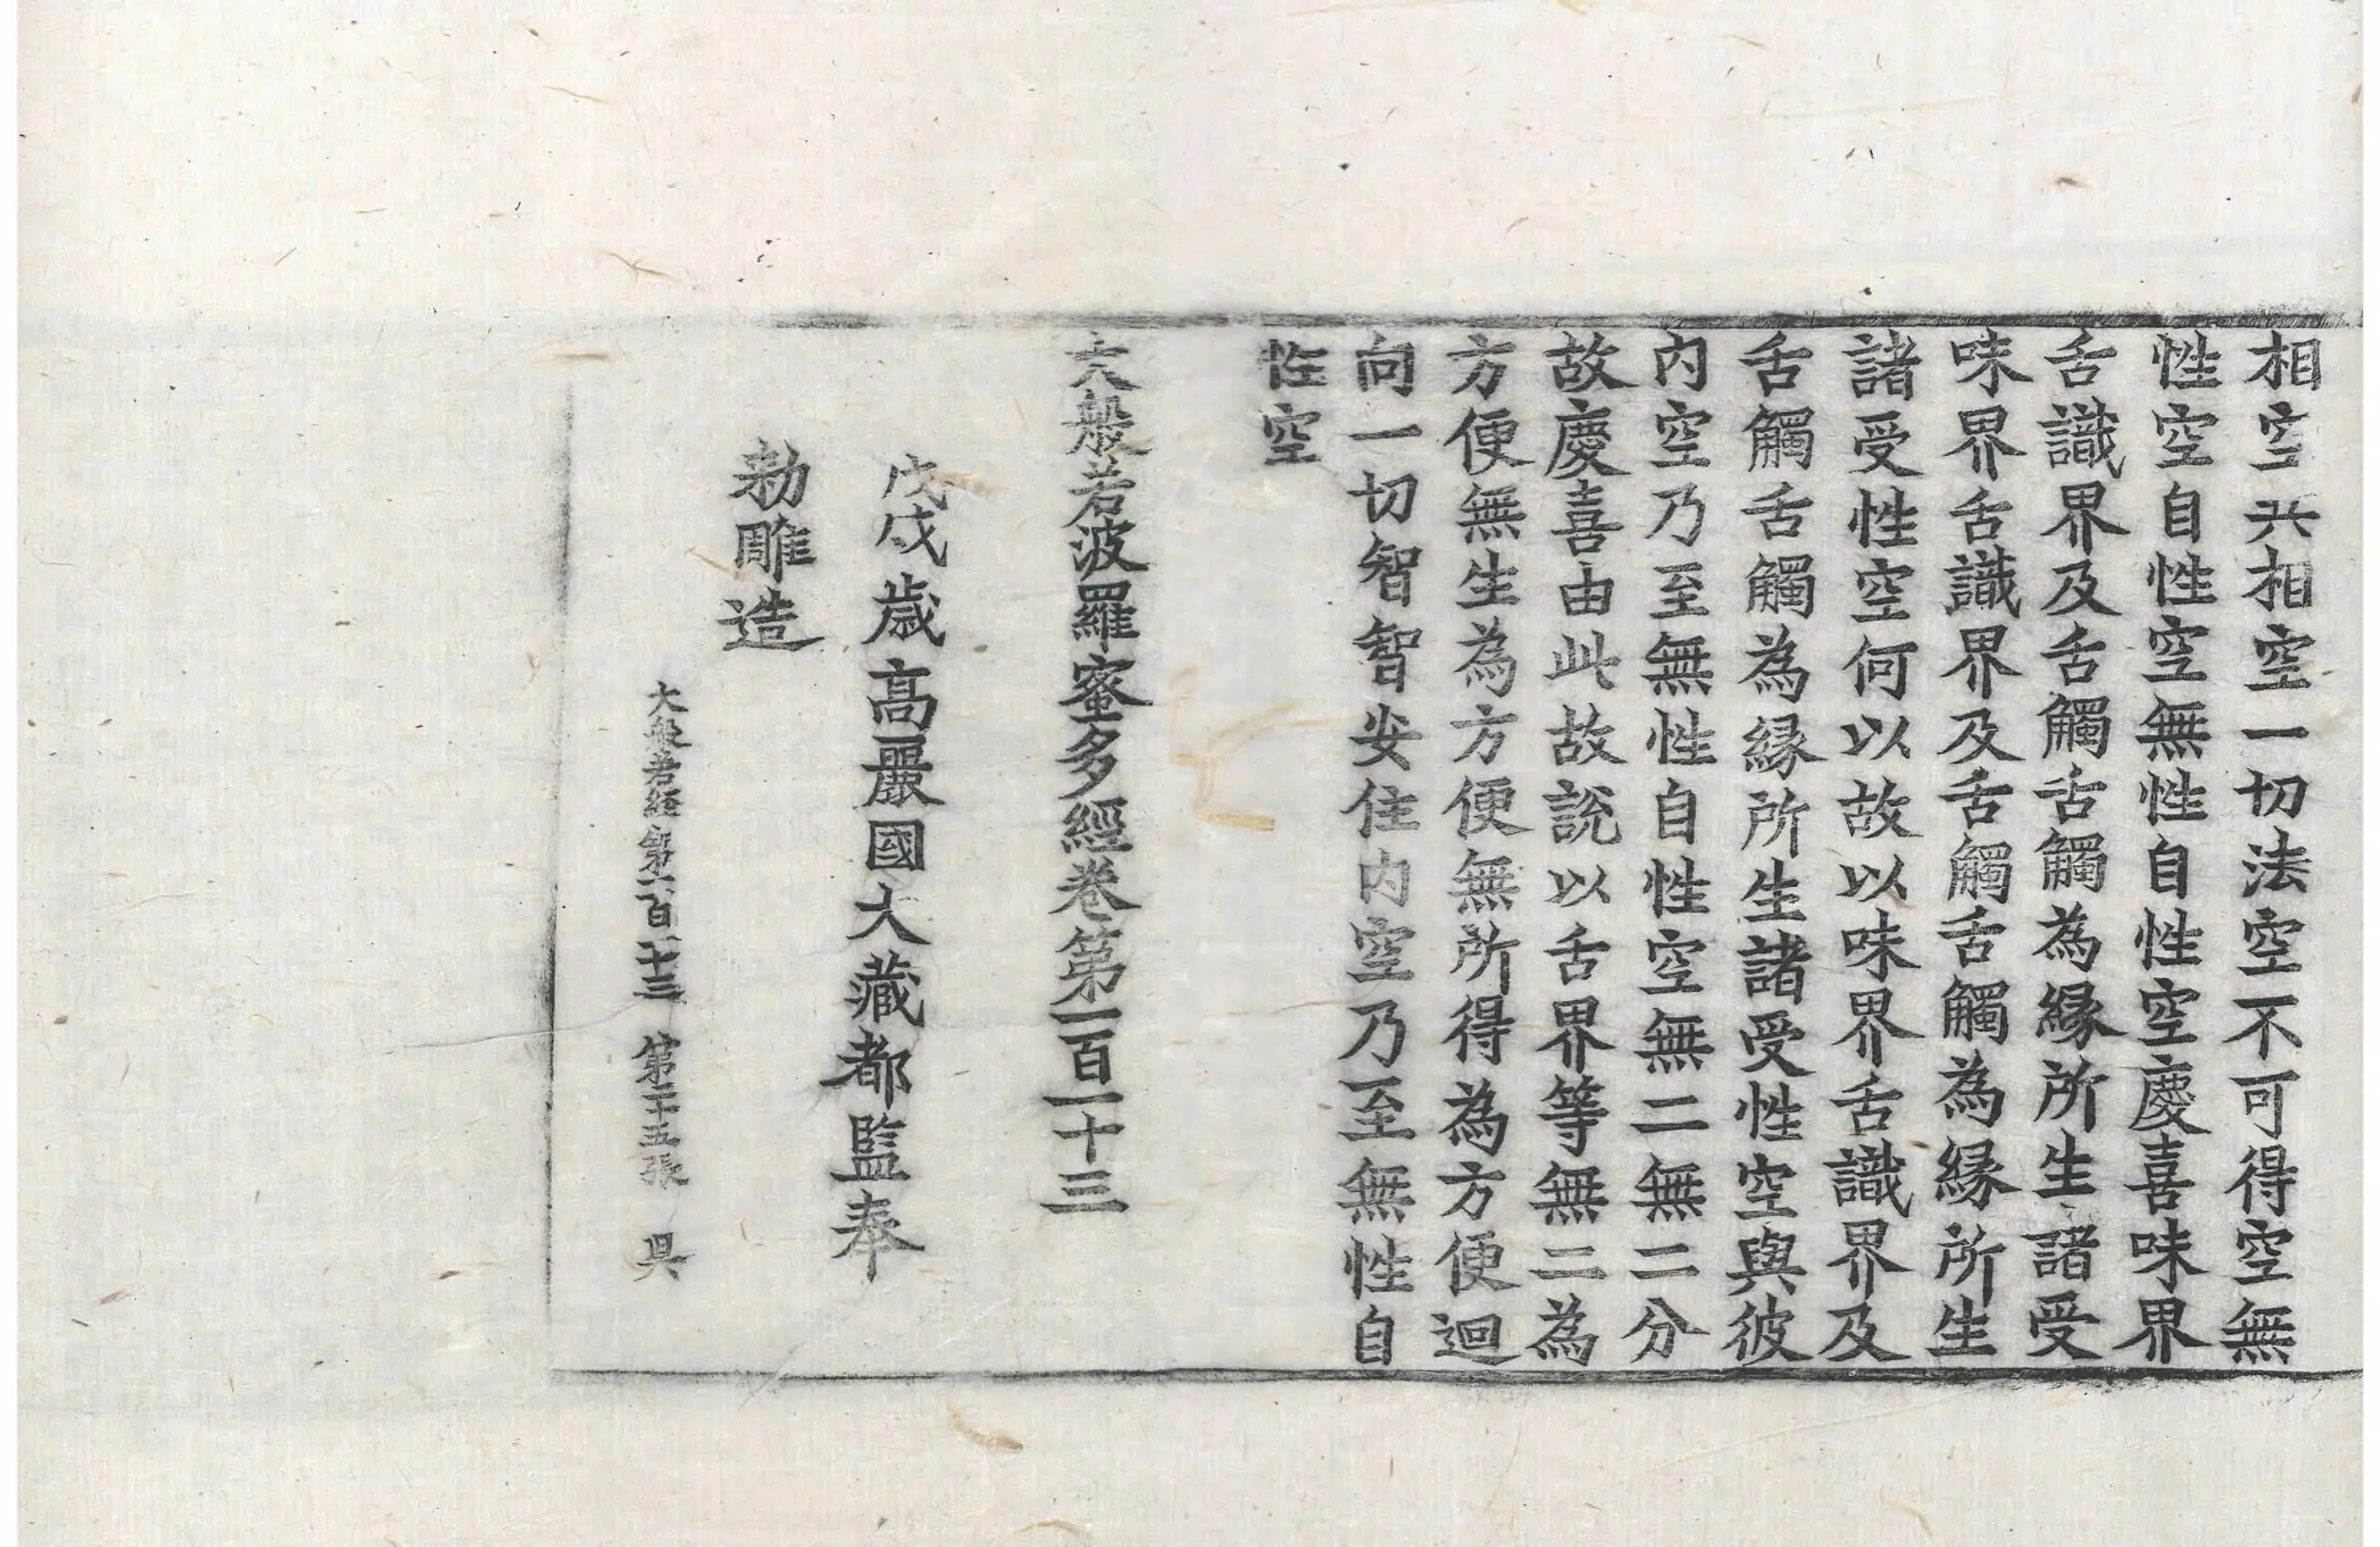 相空共相空一切法空不可得空無
性空自性空無性自性空慶喜味界
舌識界及舌觸舌觸為緣所生諸受
味界舌識界及舌觸舌觸為緣所生
諸受性空何以故以味界舌識界及
舌觸舌觸為緣所生諸受性空與彼
內空乃至無性自性空無二無二分
故慶喜由此故說以舌界等無二為
方便無生為方便無所得為方便迴
向一切智智安住內空乃至無性自
性空
大般若波羅蜜多經卷第一百一十三
戊戌歲高麗國大藏都監奉
勅雕造
大般若經 第一百一十三 第二十五張 昃